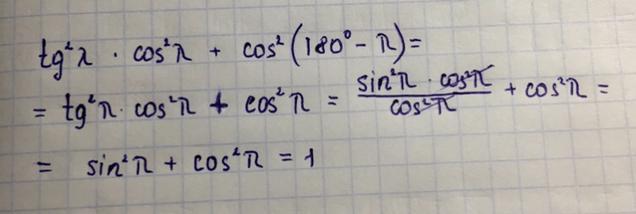 tg²π · cos²π + cos²(180° - π) =
= tg²π · cos²π + cos²π = sin²π · cos²π / cos²π + cos²π =
= sin²π + cos²π = 1